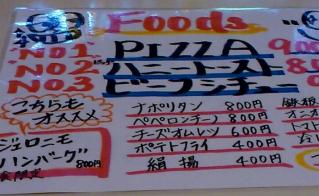 Foods
No1 PIZZA 9
No2 ハニートースト 8
No3 ビーフシチュー
こちらも
オススメ
ジェロニモ
ハンバーグ 800円
ナポリタン 800円
ペペロンチーノ 800円
チーズオムレツ 600円
ポテトフライ 400円
絹揚 400円
鉄板
オニオ
トマト